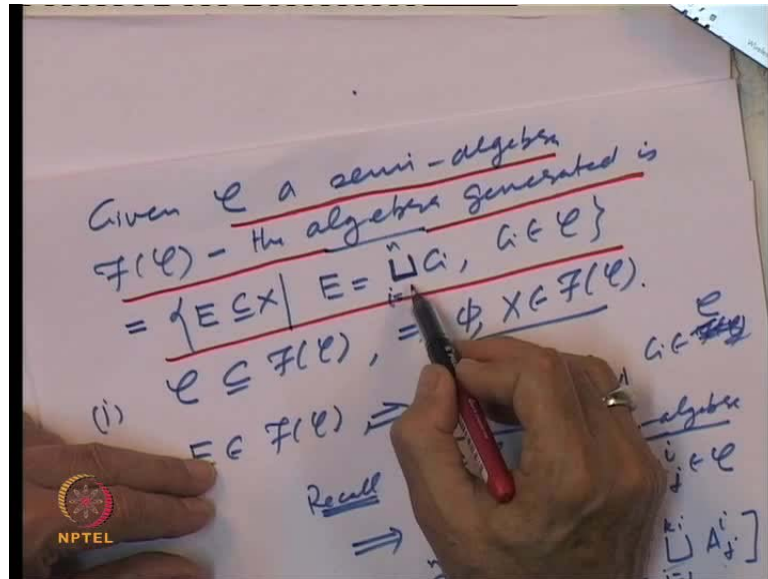 Given 𝒞 a semi-algebra
ℱ(𝒞) - the algebra generated is
= {E ⊆ X | E = ⨆ⁿᵢ₌ Cᵢ, Cᵢ ∈ 𝒞}
(i) 𝒞 ⊆ ℱ(𝒞), ⇒ ϕ, X ∈ ℱ(𝒞).
E ∈ ℱ(𝒞), ⇒ Cᵢ ∈ 𝒞
-algebra
Recall ∈ 𝒞
⇒ ⨆ Aⁱⱼ]
NPTEL